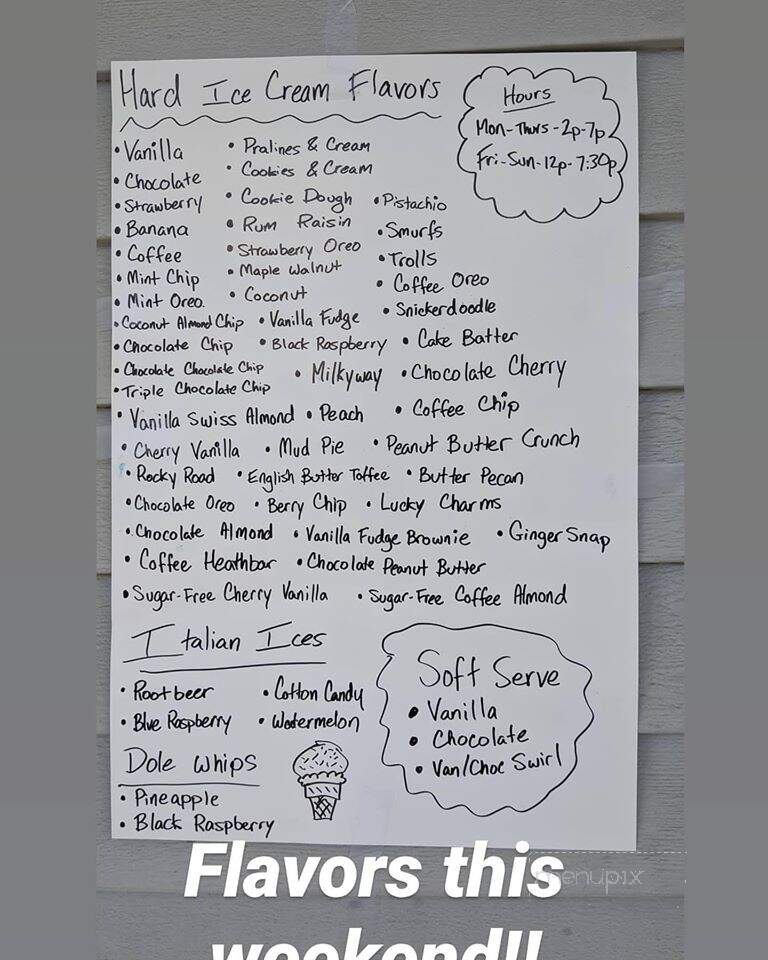 Hard Ice Cream Flavors
Hours
Mon-Thurs-2p-7p
Fri-Sun-12p-7:30p
• Vanilla • Pralines & Cream
• Chocolate • Cookies & Cream
• Strawberry • Cookie Dough • Pistachio
• Banana • Rum Raisin • Smurfs
• Coffee • Strawberry Oreo • Trolls
• Mint Chip • Maple Walnut • Coffee Oreo
• Mint Oreo. • Coconut • Snickerdoodle
• Coconut Almond Chip • Vanilla Fudge
• Chocolate Chip • Black Raspberry • Cake Batter
• Chocolate Chocolate Chip • Milkyway • Chocolate Cherry
• Triple Chocolate Chip
• Vanilla Swiss Almond • Peach • Coffee Chip
• Cherry Vanilla • Mud Pie • Peanut Butter Crunch
• Rocky Road • English Butter Toffee • Butter Pecan
• Chocolate Oreo • Berry Chip • Lucky Charms
• Chocolate Almond • Vanilla Fudge Brownie • Ginger Snap
• Coffee Heathbar • Chocolate Peanut Butter
• Sugar-Free Cherry Vanilla • Sugar-Free Coffee Almond
Italian Ices
• Rootbeer • Cotton Candy
• Blue Raspberry • Watermelon
Soft Serve
• Vanilla
• Chocolate
• Van/Choc Swirl
Dole Whips
• Pineapple
• Black Raspberry
Flavors this
weekend!!
menupix